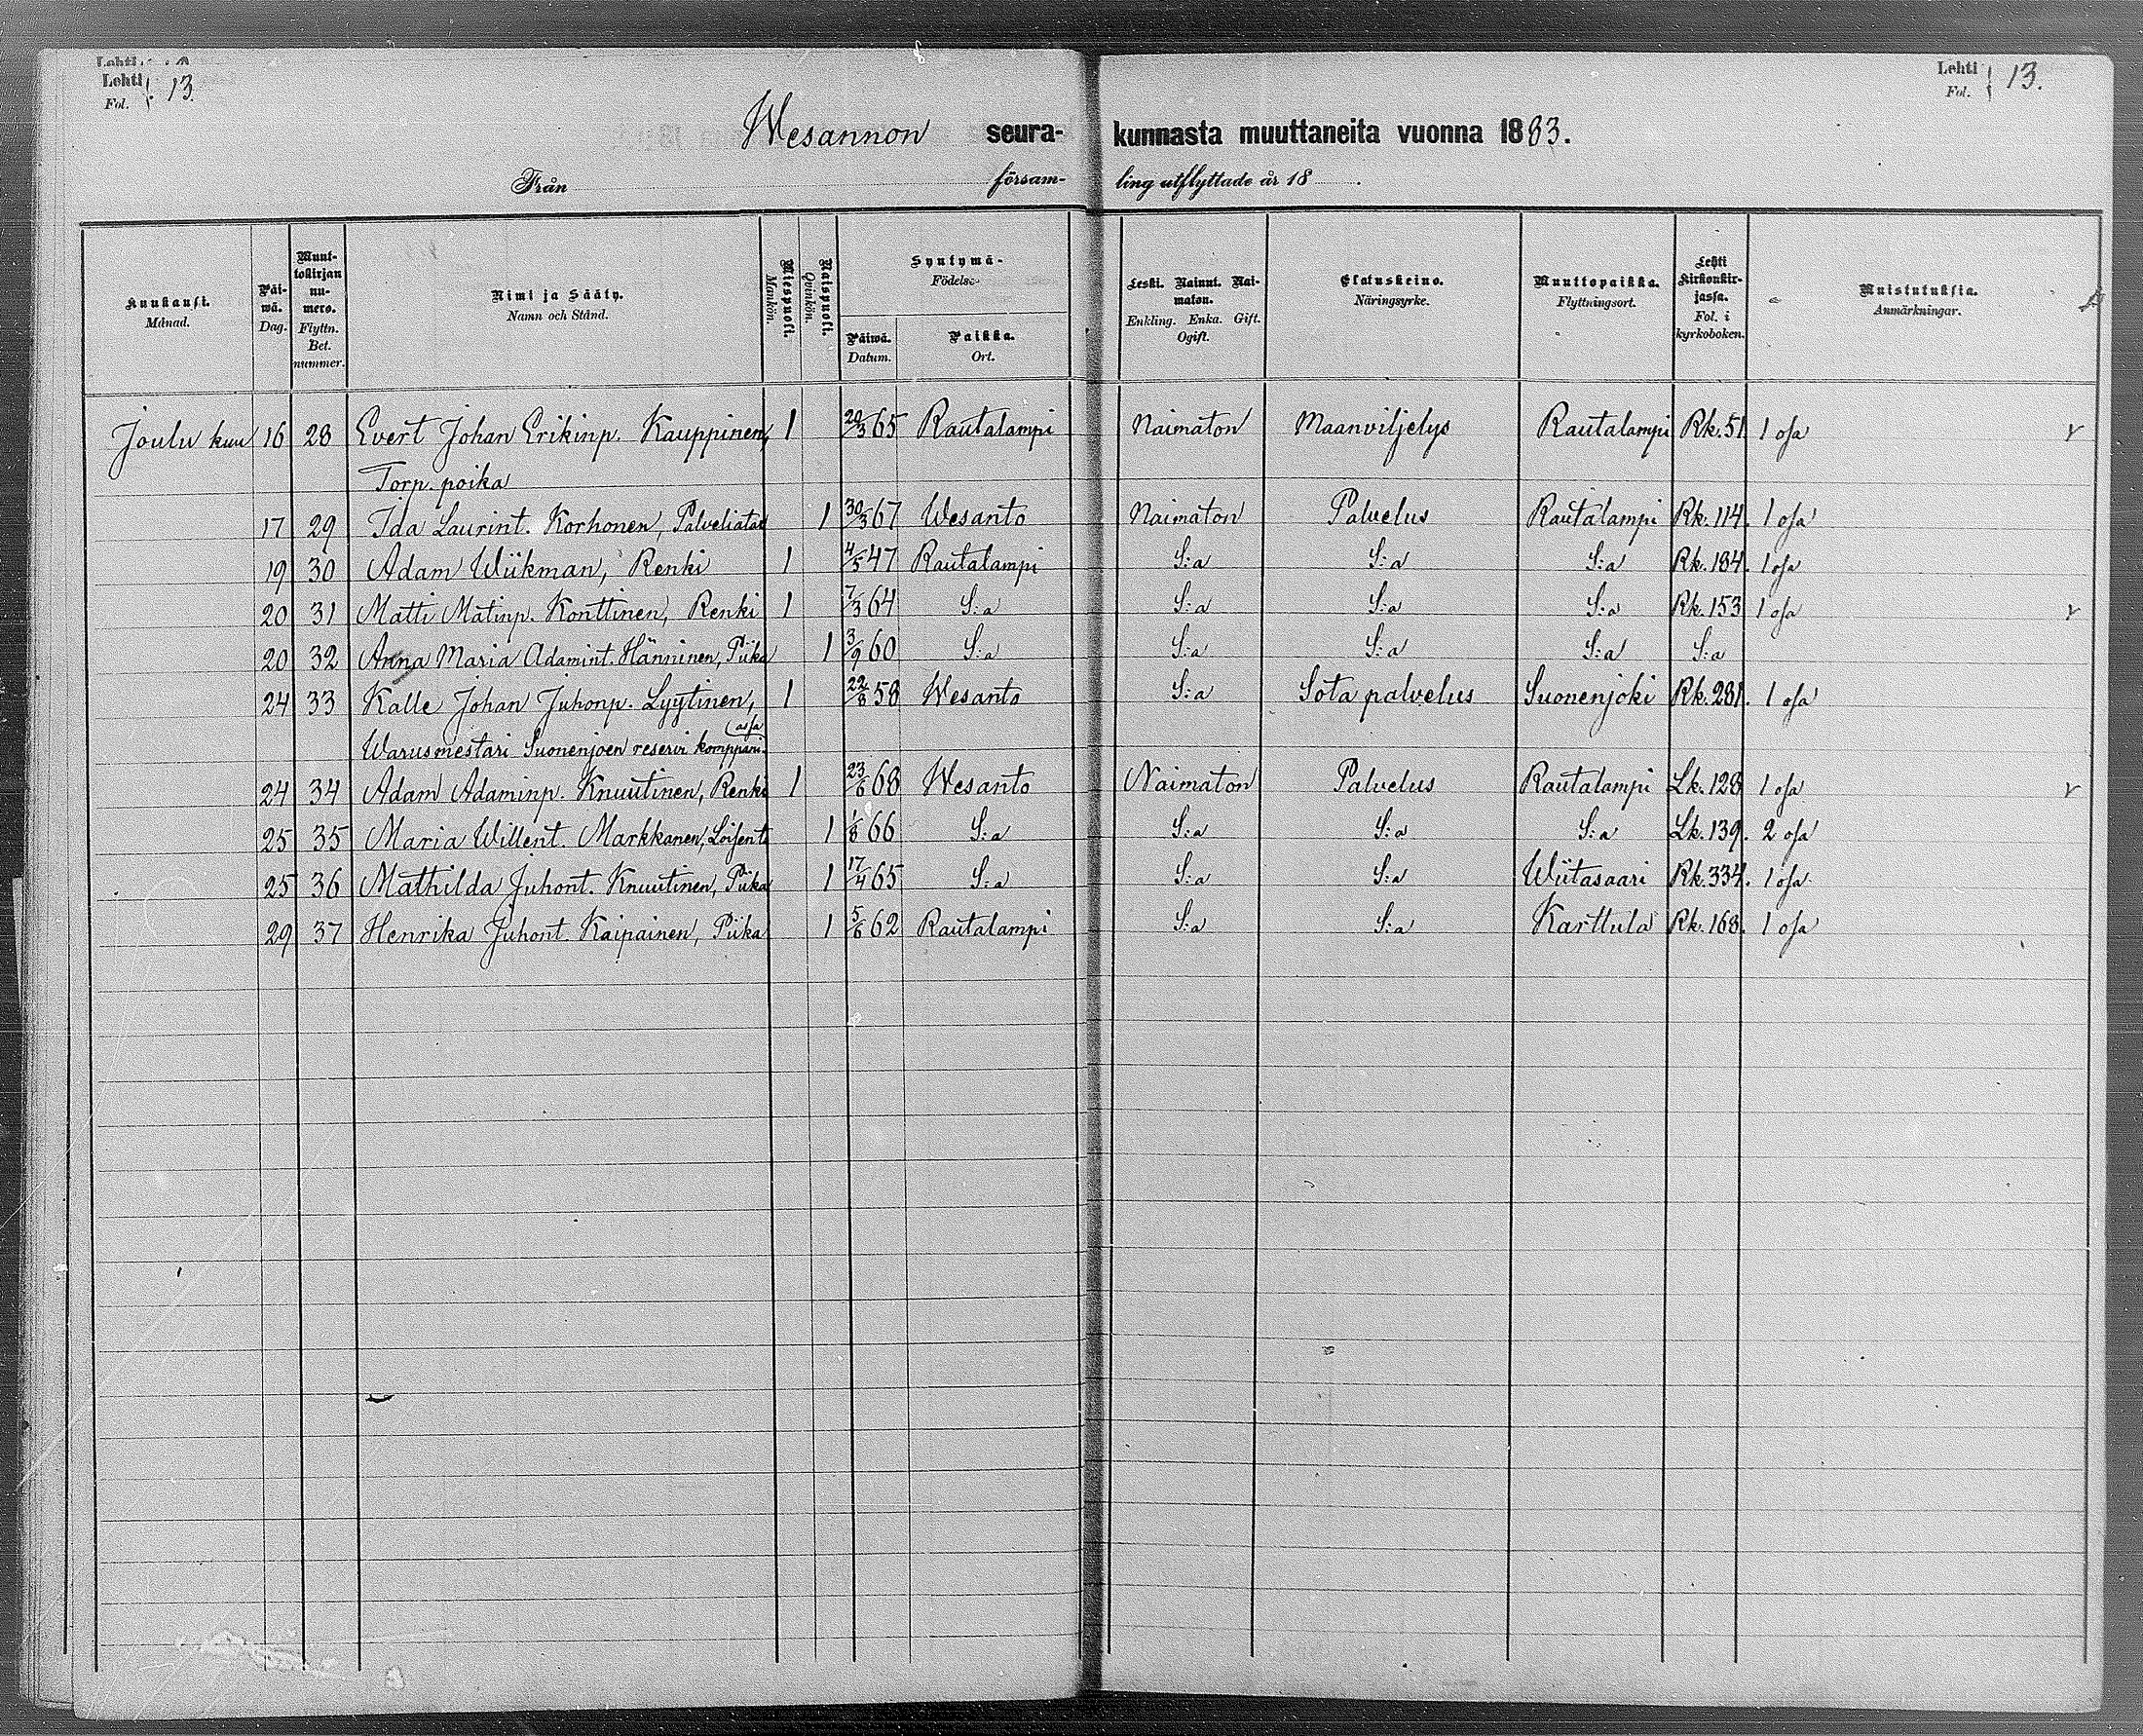 Lehti
Fol. 13.
Lehti
Fol. 13.
Wesannon seura- kunnasta muuttaneita vuonna 1883.
Från försam- ling utflyttade år 18 .
Kuukausi. Månad.
Päi-wä. Dag.
Muut-tokirjan nu-mero. Flyttn. Bet. nummer.
Nimi ja Sääty. Namn och Stånd.
Miespuoli. Mankön.
Naispuoli. Qvinkön.
Syntymä- Födelse-
Päiwä. Datum.
Paikka. Ort.
Leski. Nainut. Nai-maton. Enkling. Enka. Gift. Ogift.
Elatuskeino. Näringsyrke.
Muuttopaikka. Flyttningsort.
Lehti Kirkonkir-jassa. Fol. i kyrkoboken.
Muistutuksia. Anmärkningar.
Joulu kuu 16 28 Evert Johan Erikinp. Kauppinen, 1 20/3 65 Rautalampi Naimaton Maanviljelys Rautalampi Rk. 51 1 osa
Torp. poika
17 29 Ida Laurint. Korhonen, Palveliatar 1 30/3 67 Wesanto Naimaton Palvelus Rautalampi Rk. 114. 1 osa
19 30 Adam Wiikman, Renki 1 4/5 47 Rautalampi S:a S:a S:a Rk. 184. 1 osa
20 31 Matti Matinp. Konttinen, Renki 1 7/3 64 S:a S:a S:a S:a Rk. 153 1 osa
20 32 Anna Maria Adamint. Hänninen, Piika 1 3/9 60 S:a S:a S:a S:a S:a
24 33 Kalle Johan Juhonp. Lyytinen, 1 22/8 58 Wesanto S:a Sota palvelus Suonenjoki Rk. 281. 1 osa
Warusmestari Suonenjoen reservi komppani-assa
24 34 Adam Adaminp. Knuutinen, Renki 1 23/6 68 Wesanto Naimaton Palvelus Rautalampi Lk. 128 1 osa
25 35 Maria Willent. Markkanen, Loisent. 1 1/8 66 S:a S:a S:a S:a Lk. 139. 2 osa
25 36 Mathilda Juhont. Knuutinen, Piika 1 17/4 65 S:a S:a S:a Wiitasaari Rk. 334. 1 osa
29 37 Henrika Juhont. Kaipainen, Piika 1 5/6 62 Rautalampi S:a S:a Karttula Rk. 168. 1 osa